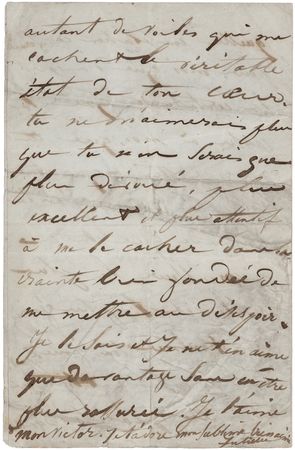 autant de voiles qui me
cachent le véritable
état de ton cœur.
tu ne m'aimerais plus
que tu n'en serais que
plus dévoué, plus
excellent et plus attentif
à me le cacher dans la
crainte bien fondée de
me mettre au désespoir.
Je le sais et je ne t'en aime
que davantage sans en être
plus rassurée. Je t'aime
mon Victor. Je t'adore mon sublime
Juliette